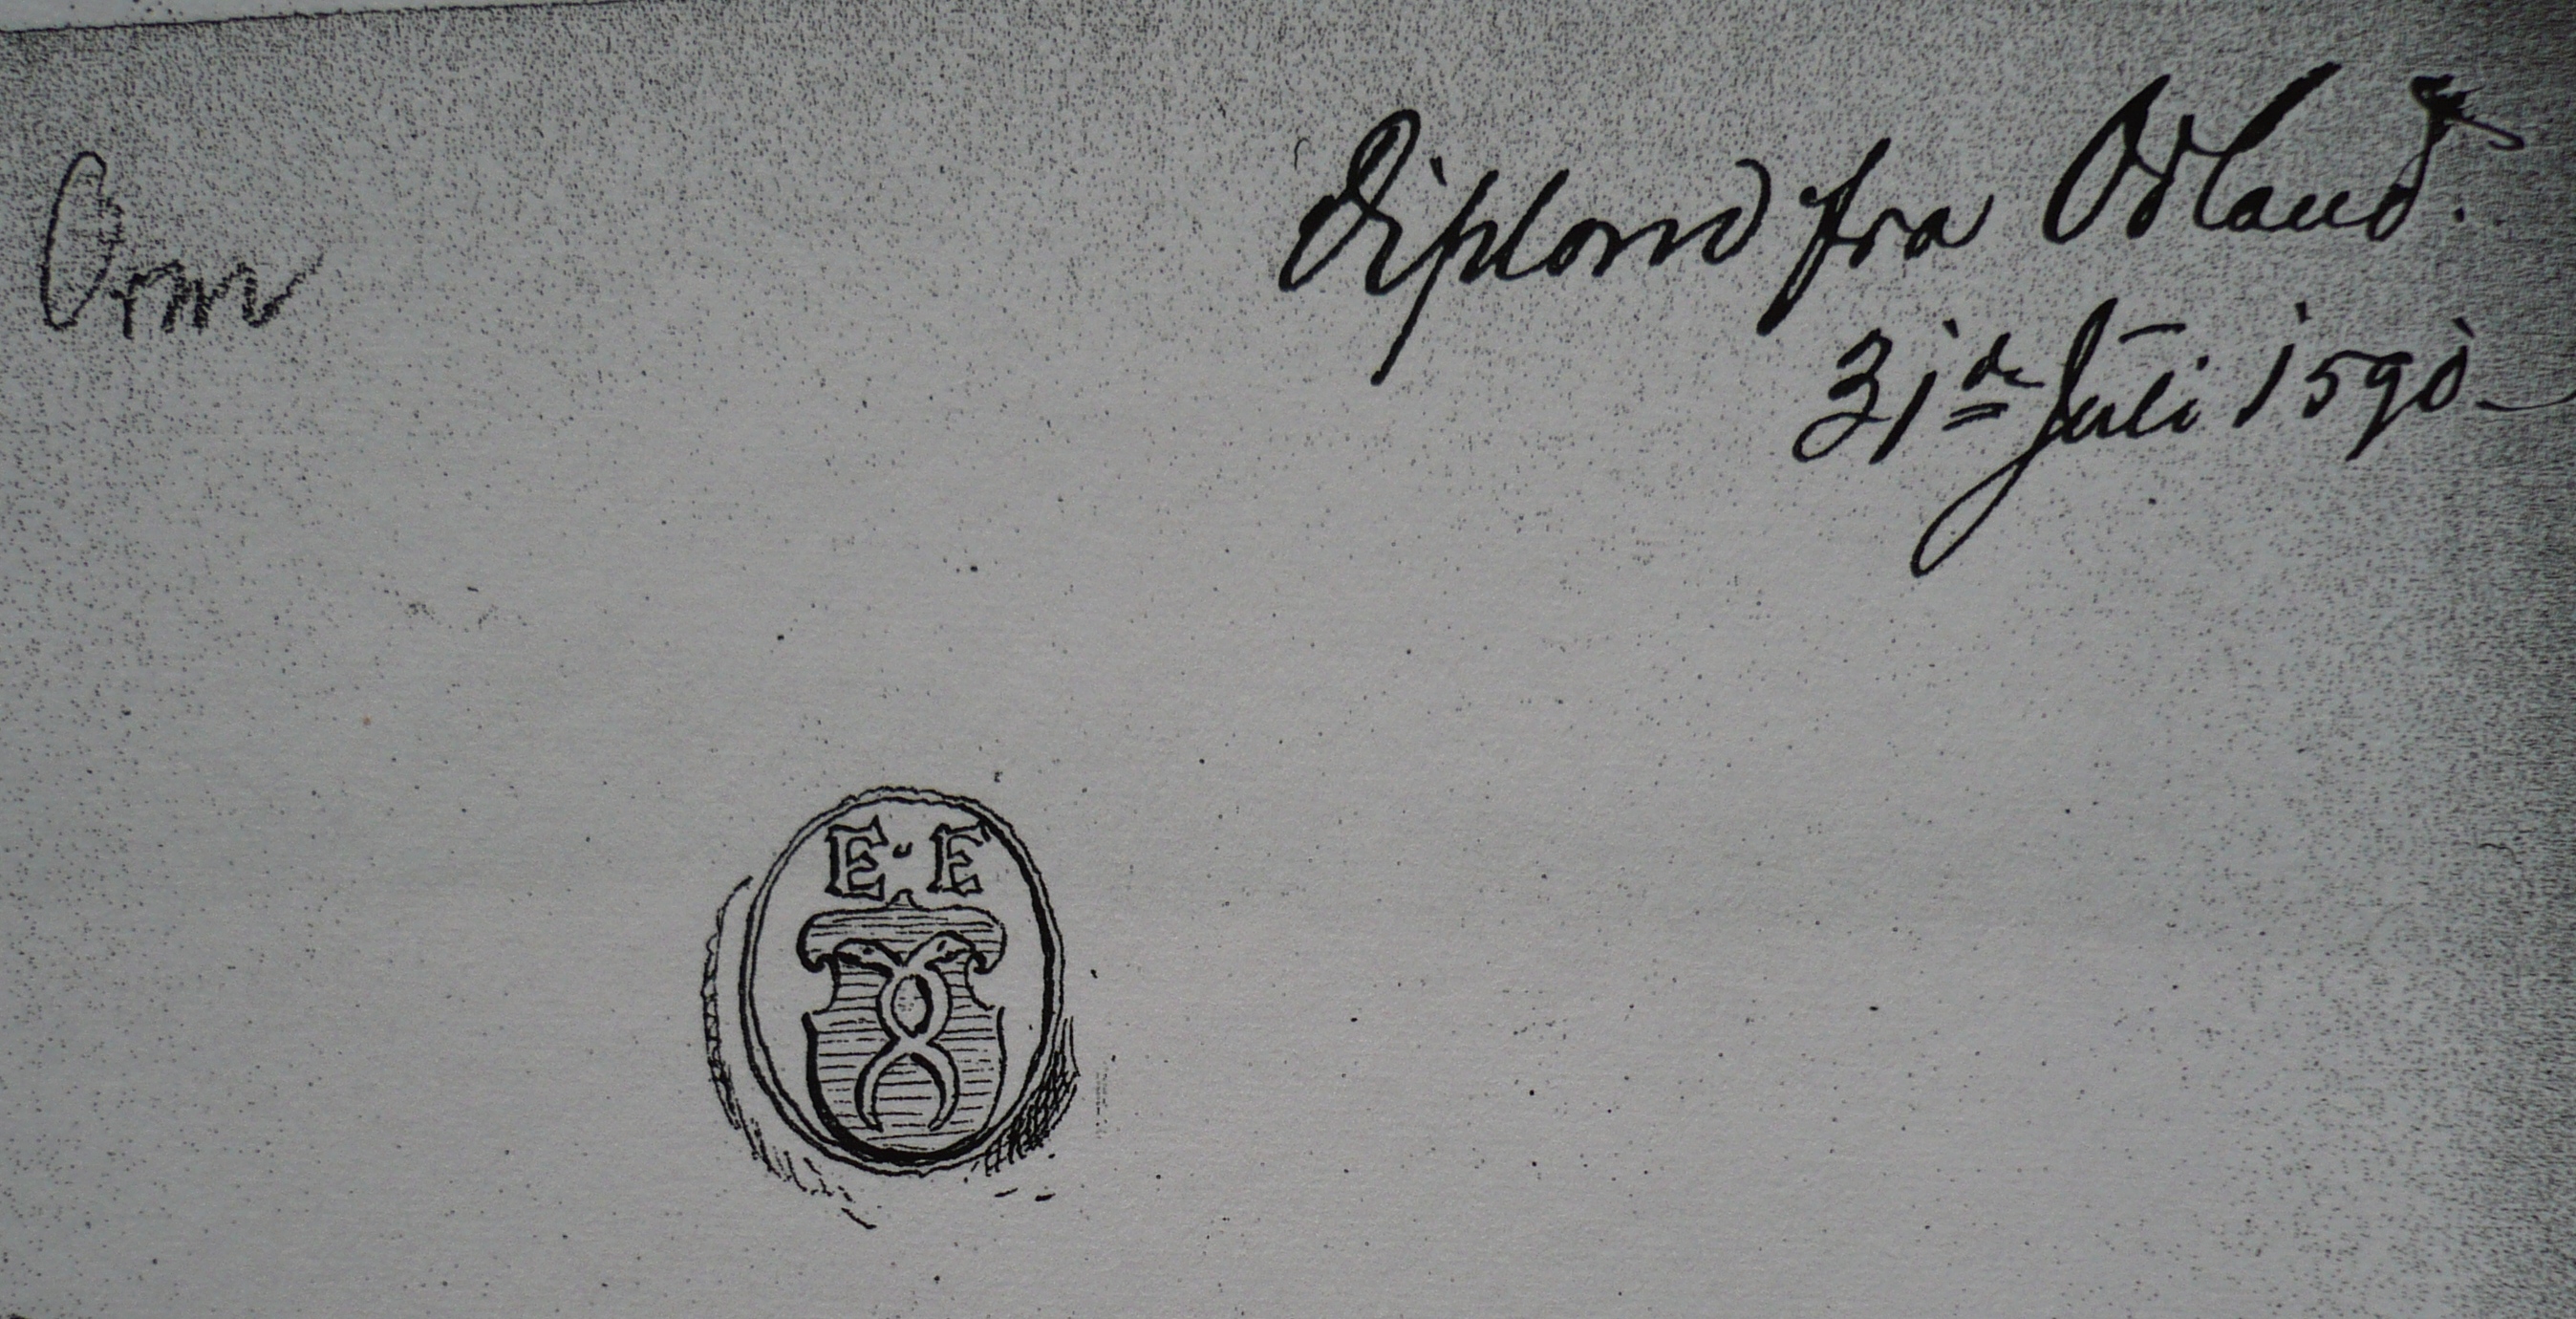 Orm
Diplom fra Odland.
31de Juli 1590
E·E